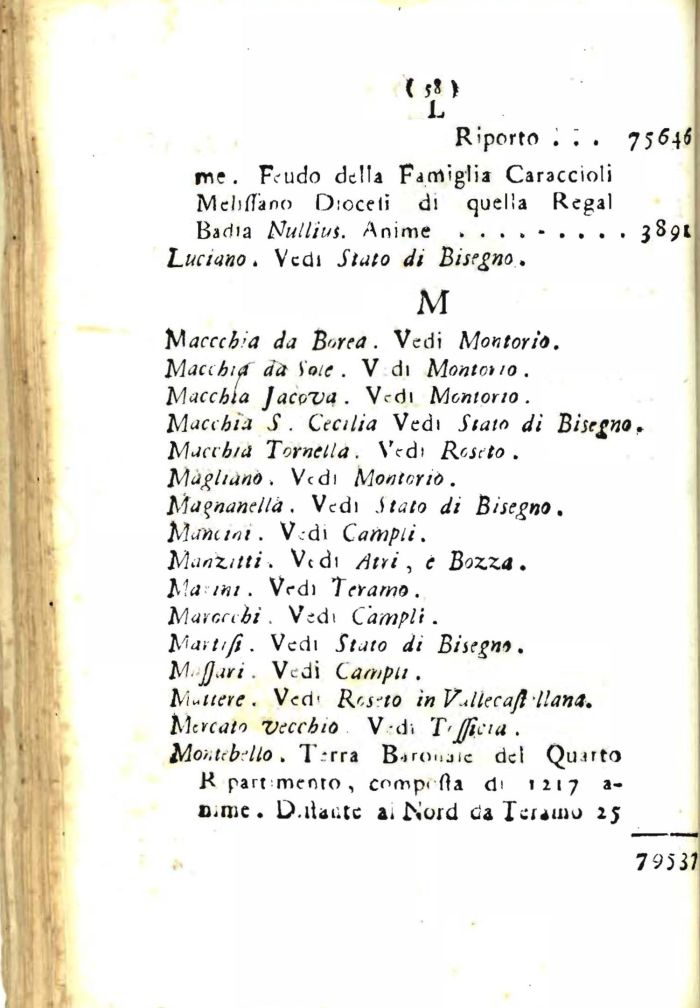 ( 58 )
L
Riporto . . . 75646
me. Feudo della Famiglia Caraccioli
Melissano Diocesi di quella Regal
Badia Nullius. Anime . . . . - . . . . 3891
Luciano. Vedi Stato di Bisegno.
M
Maccchia da Borea. Vedi Montorio.
Macchia da Sole. Vedi Montorio.
Macchia Jacova. Vedi Montorio.
Macchia S. Cecilia Vedi Stato di Bisegno.
Macchia Tornella. Vedi Roseto.
Magliano. Vedi Montorio.
Magnanella. Vedi Stato di Bisegno.
Mancini. Vedi Campli.
Manzitti. Vedi Atri, e Bozza.
Marini. Vedi Teramo.
Marocchi. Vedi Campli.
Martisi. Vedi Stato di Bisegno.
Massari. Vedi Campli.
Mattere. Vedi Roseto in Vallecastellana.
Mercato vecchio Vedi Tossicia.
Montebello. Terra Baronale del Quarto
Ripartimento, composta di 1217 a-
nime. Distante al Nord da Teramo 25
79537